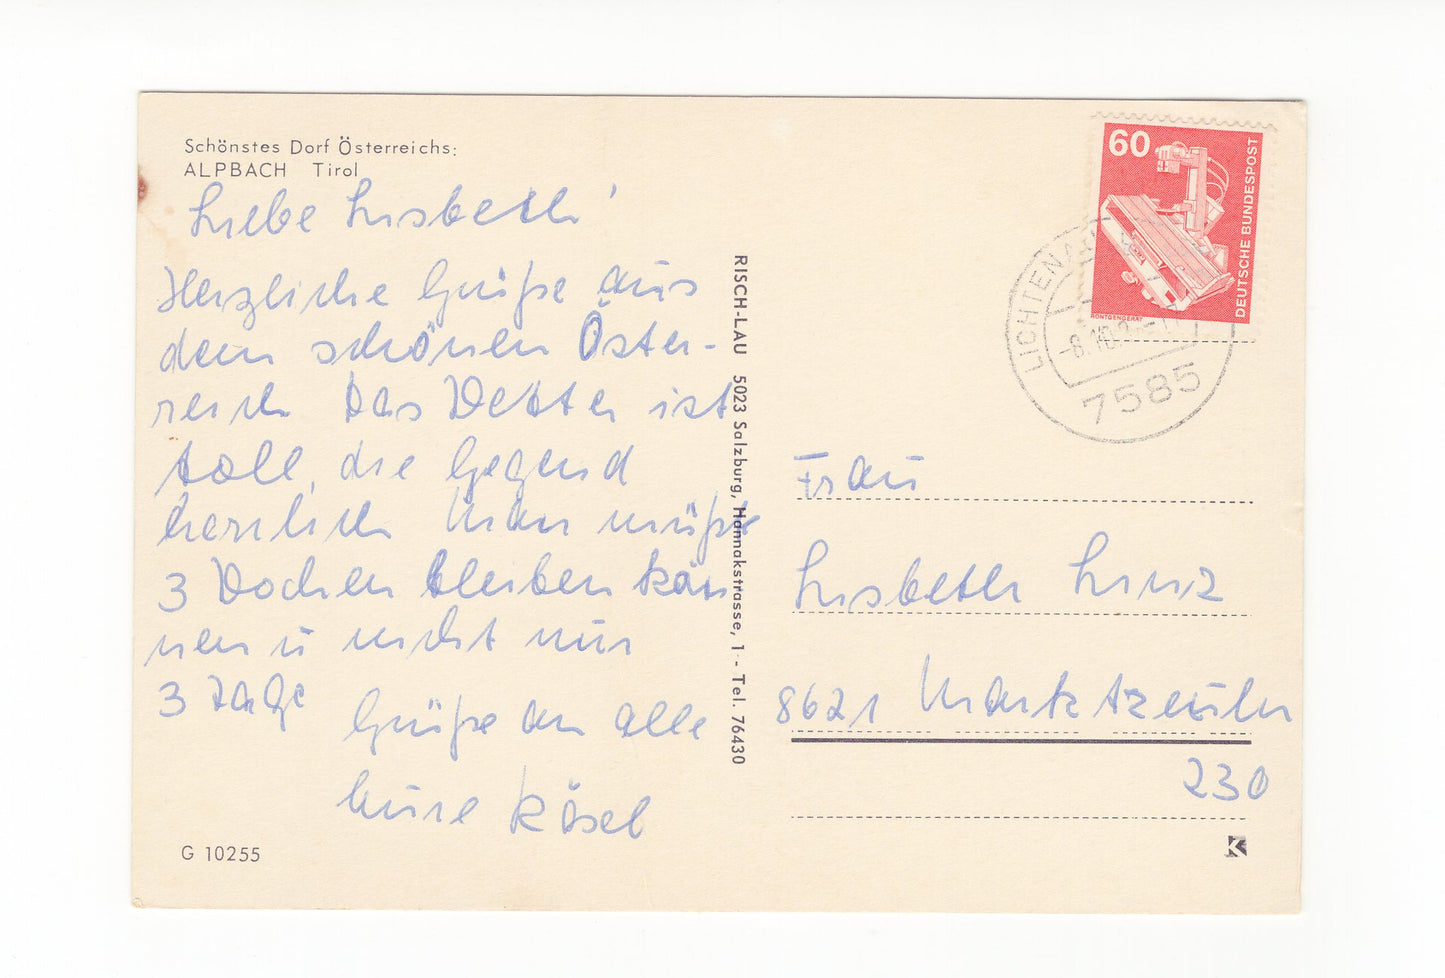 Schönstes Dorf Österreichs:
ALPBACH Tirol
Liebe Lisbeth!
Herzliche Grüße aus
dem schönen Öster-
reich Das Wetter ist
toll, die Gegend
herrlich Man müßte
3 Wochen bleiben kön
nen u nicht nur
3 Tage
Grüße an alle
Eure Rösel
G 10255
RISCH-LAU 5023 Salzburg, Hannakstrasse, 1 - Tel. 76430
60
DEUTSCHE BUNDESPOST
RÖNTGENGERÄT
-8.10.
7585
Frau
Lisbeth Linz
8621 Marktzeuln
230
K